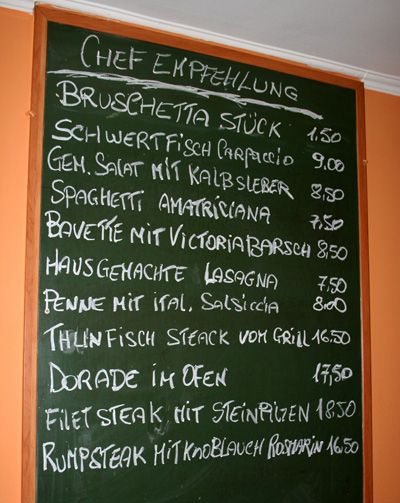 CHEF EMPFEHLUNG
BRUSCHETTA STÜCK 1.50
SCHWERTFISCH CARPACCIO 9,00
GEM. SALAT MIT KALBSLEBER 8,50
SPAGHETTI AMATRICIANA 7,50
BAVETTE MIT VICTORIABARSCH 8,50
HAUSGEMACHTE LASAGNA 7,50
PENNE MIT ITAL. SALSICCIA 8,00
THUNFISCH STEACK VOM GRILL 16.50
DORADE IM OFEN 17,50
FILET STEAK MIT STEINPILZEN 18.50
RUMPSTEAK MIT KNOBLAUCH ROSMARIN 16.50